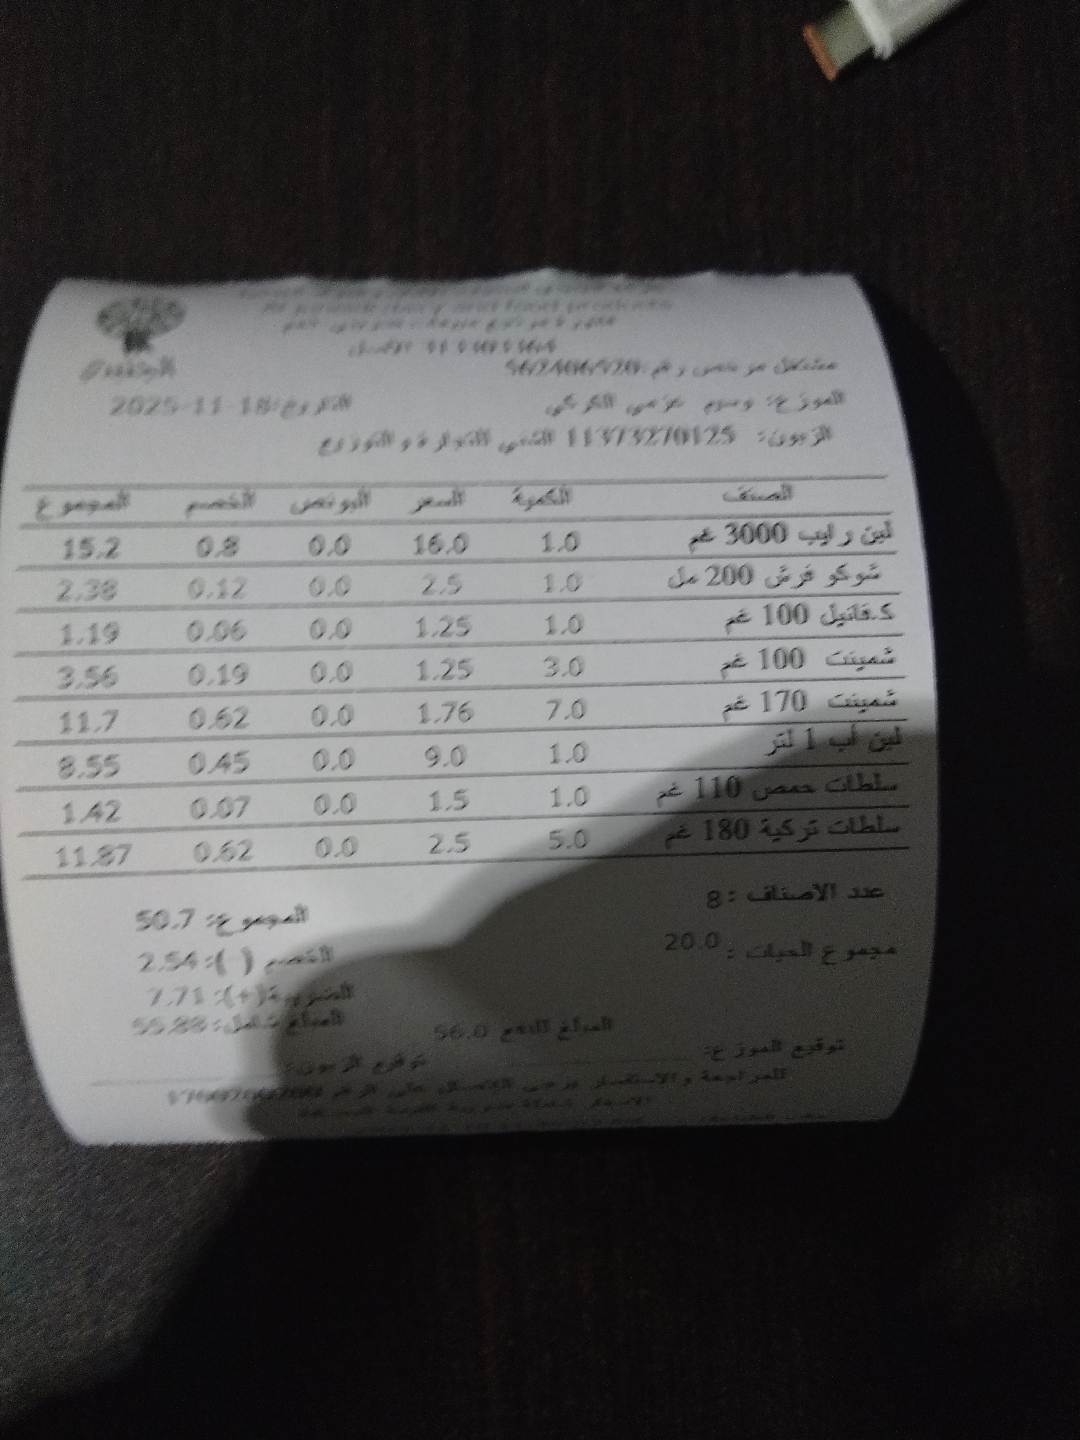 الجنيدي
مشتغل مرخص رقم: 562406520
الموزع: وسيم عزمي الكركي التاريخ: 2025-11-18
الزبون: 11373270125 التقي للتجارة و التوزيع
الصنف الكمية السعر البونص الخصم المجموع
لبن رايب 3000 غم 1.0 16.0 0.0 0.8 15.2
شوكو فرش 200 مل 1.0 2.5 0.0 0.12 2.38
ك.فانيل 100 غم 1.0 1.25 0.0 0.06 1.19
شمينت 100 غم 3.0 1.25 0.0 0.19 3.56
شمينت 170 غم 7.0 1.76 0.0 0.62 11.7
لبن أب 1 لتر 1.0 9.0 0.0 0.45 8.55
سلطات حمص 110 غم 1.0 1.5 0.0 0.07 1.42
سلطات تركية 180 غم 5.0 2.5 0.0 0.62 11.87
عدد الاصناف : 8 المجموع: 50.7
مجموع الحبات : 20.0 الخصم ( ): 2.54
الضريبة(+): 7.71
المبلغ للدفع 56.0 المبلغ شامل: 55.88
توقيع الموزع: توقيع الزبون:
للمراجعة و الاستفسار يرجى الاتصال على الرقم